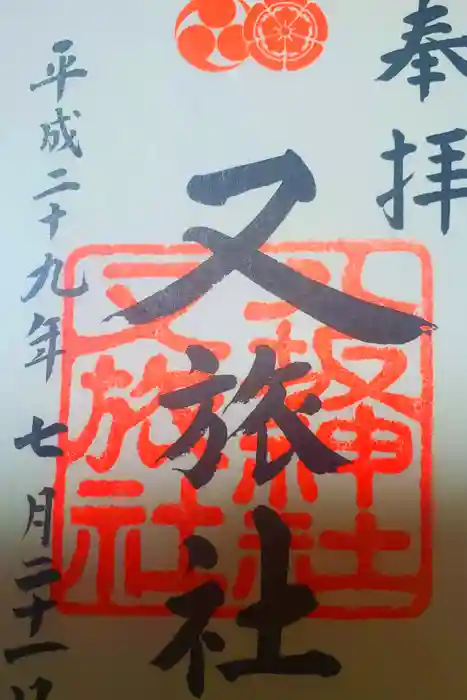 奉拝
又旅社
八坂神社
又旅社
平成二十九年七月二十一日